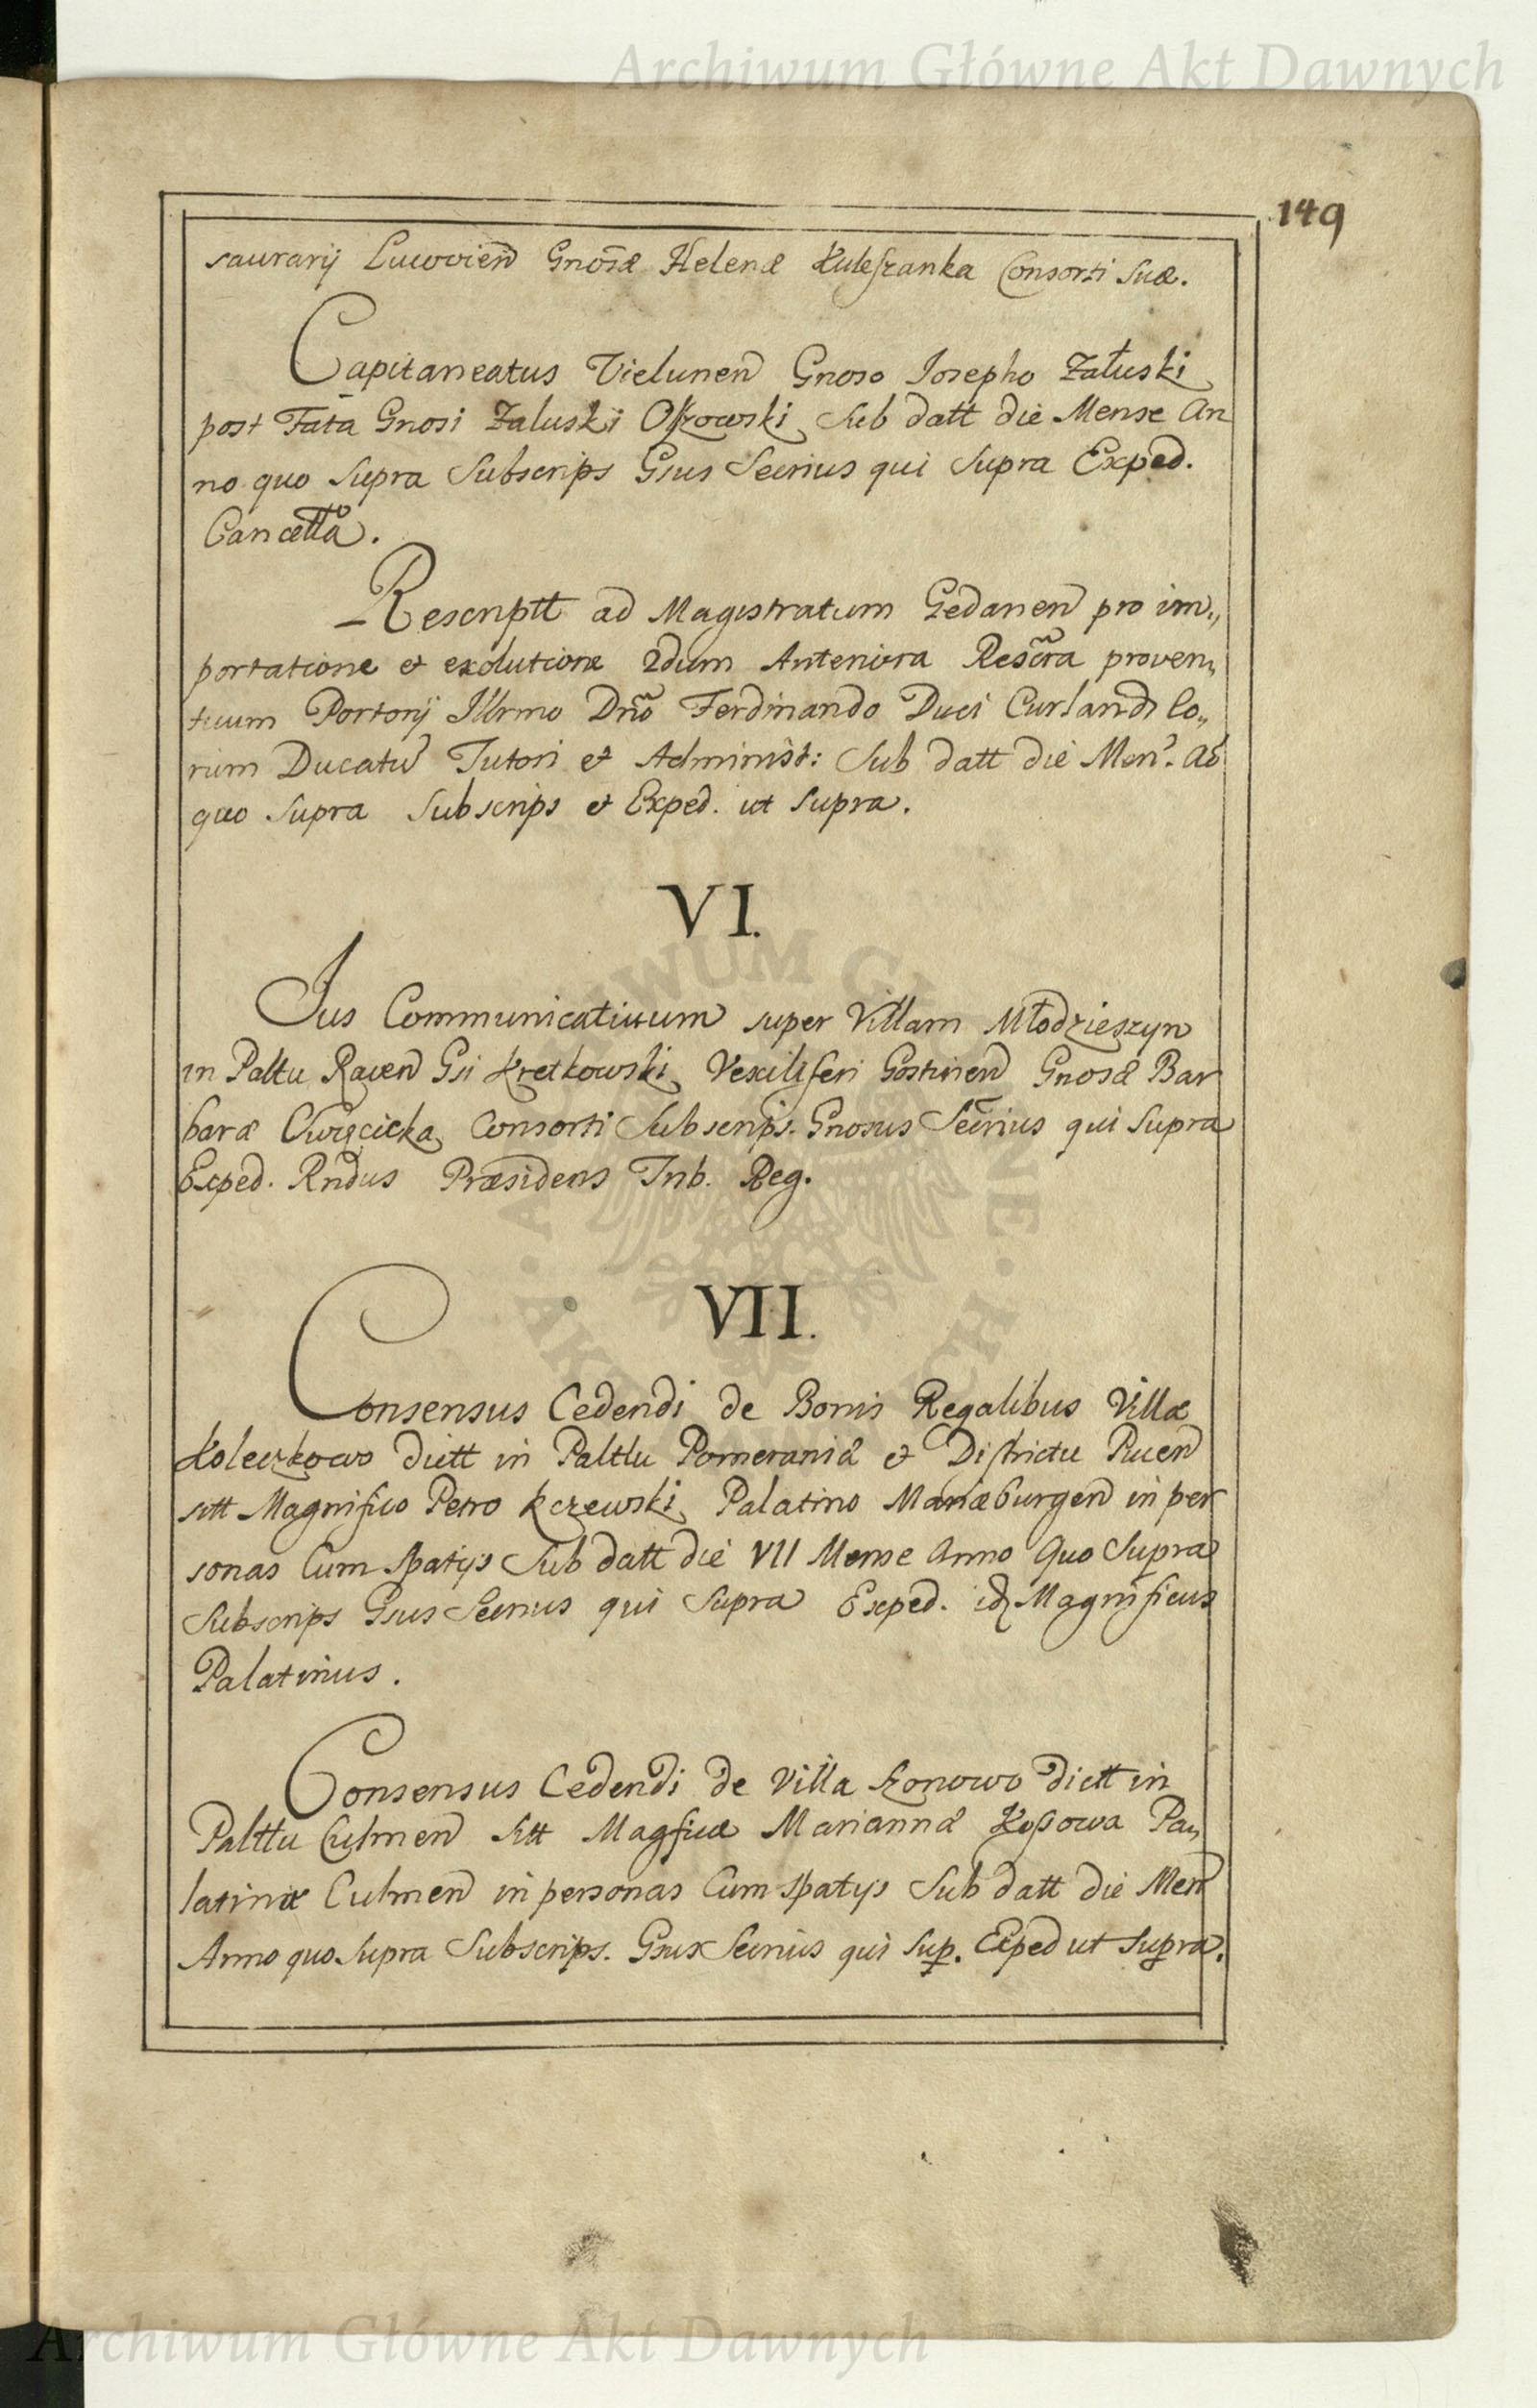 Archiwum Główne Akt Dawnych
149
saurarij Luccorien Gnosæ Helenæ Kuleszanka Consorti suæ.
Capitaneatus Vielunen Gnoso Iosepho Załuski
post Fata Gnosi Zaluski Ossowski sub datt die Mense An
no quo supra Subscrips Gsus Secrius qui supra Exped.
Cancella.
Rescriptt ad Magistratum Gedanen pro im„
portatione et exolutione 2dum Anteriora Rescra proven„
tuum Portorij Illrmo Dno Ferdinando Duci Curlandi eo„
rum Ducatu Tutori et Administ: sub datt die Men. Ao
quo supra Subscrips et Exped. ut supra.
VI.
Jus Communicativum super Villam Młodzieszyn
in Paltu Raven Gsi Kretkowski Vexiliferi Gostinen Gnosæ Bar
baræ Consorti Subscrips. Gnosus Secrius qui supra
Exped. Rndus Præsidens Trib. Reg.
VII.
Consensus Cedendi de Bonis Regalibus Villæ
Koleczkowo dictt in Palttu Pomeraniæ et Districtu Pucen
sitt Magnifico Petro Kczewski Palatino Mariæburgen in per
sonas Cum spatijs sub datt die VII Mense Anno Quo Supra
Subscrips Gsus Secrius qui supra Exped. idz Magnificus
Palatinus.
Consensus Cedendi de Villa Szonowo dictt in
Palttu Culmen sitt Magficæ Mariannæ Kosowa Pa„
latinæ Culmen in personas Cum spatijs sub datt die Men
Anno quo supra Subscrips. Gsus Secrius qui sup. Exped ut supra.
Archiwum Główne Akt Dawnych